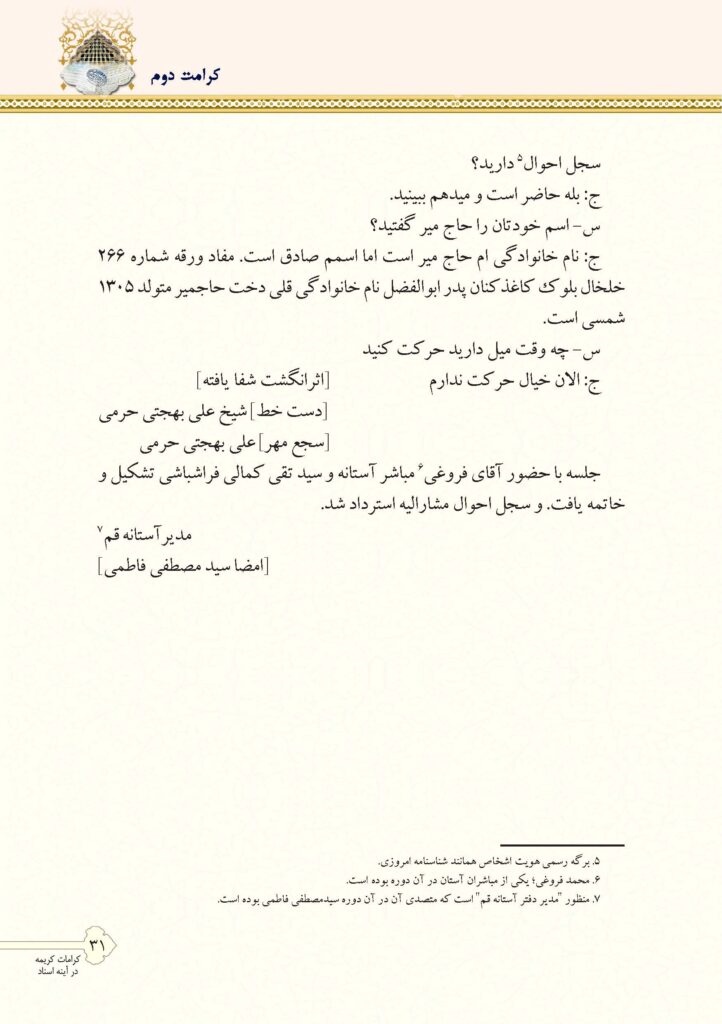 کرامت دوم
سجل احوال۵ دارید؟
ج: بله حاضر است و میدهم ببینید.
س- اسم خودتان را حاج میر گفتید؟
ج: نام خانوادگی ام حاج میر است اما اسمم صادق است. مفاد ورقه شماره ۲۶۶
خلخال بلوک کاغذکنان پدر ابوالفضل نام خانوادگی قلی دخت حاجمیر متولد ۱۳۰۵
شمسی است.
س- چه وقت میل دارید حرکت کنید
ج: الان خیال حرکت ندارم [اثرانگشت شفا یافته]
[دست خط] شیخ علی بهجتی حرمی
[سجع مهر] علی بهجتی حرمی
جلسه با حضور آقای فروغی۶ مباشر آستانه و سید تقی کمالی فراشباشی تشکیل و
خاتمه یافت. و سجل احوال مشارالیه استرداد شد.
مدیر آستانه قم۷
[امضا سید مصطفی فاطمی]
۵. برگه رسمی هویت اشخاص همانند شناسنامه امروزی.
۶. محمد فروغی؛ یکی از مباشران آستان در آن دوره بوده است.
۷. منظور "مدیر دفتر آستانه قم" است که متصدی آن در آن دوره سیدمصطفی فاطمی بوده است.
۳۱
کرامات کریمه
در آینه اسناد